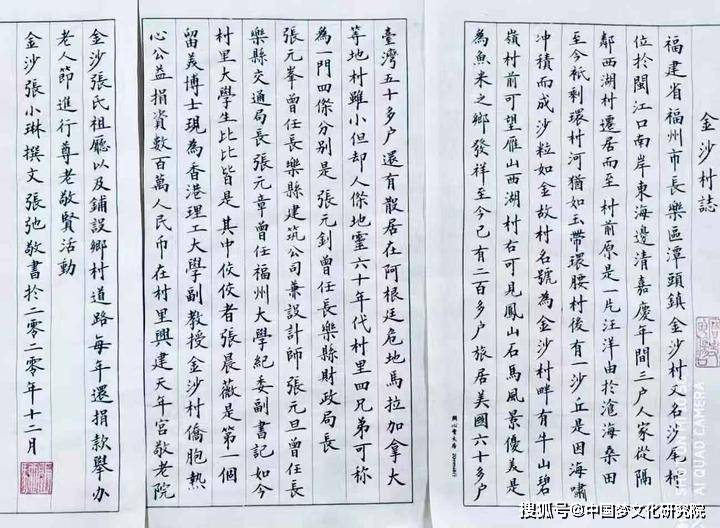 金沙村誌
福建省福州市長樂區潭頭鎮金沙村又名沙尾村
位於閩江口南岸東海邊清嘉慶年間三户人家從隔
鄰西湖村遷居而至村前原是一片汪洋由於滄海桑田
至今衹剩環村河猶如玉帶環腰村後有一沙丘是因海嘯
冲積而成沙粒如金故村名號為金沙村畔有牛山碧
嶺村前可望雁山西湖村右可見鳳山石馬風景優美是
為魚米之鄉發祥至今已有二百多户旅居美國六十多户
臺灣五十多户還有散居在阿根廷危地馬拉加拿大
等地村雖小但却人傑地靈六十年代村里四兄弟可称
為一門四傑分别是張元釗曾任長樂縣財政局長
張元峯曾任長樂縣建筑公司兼設計師張元旦曾任長
樂縣交通局長張元章曾任福州大學紀委副書記如今
村里大學生比比皆是其中佼佼者張晨薇是第一個
留美博士現為香港理工大學副教授金沙村僑胞熱
心公益捐資數百萬人民币在村里興建天年宮敬老院
金沙張氏祖廳以及鋪設鄉村道路每年還捐款舉办
老人節進行尊老敬賢活動
金沙張小琳撰文張弛敬書於二零二零年十二月
AI QUAD CAMERA
搜狐号@中国梦文化研究院